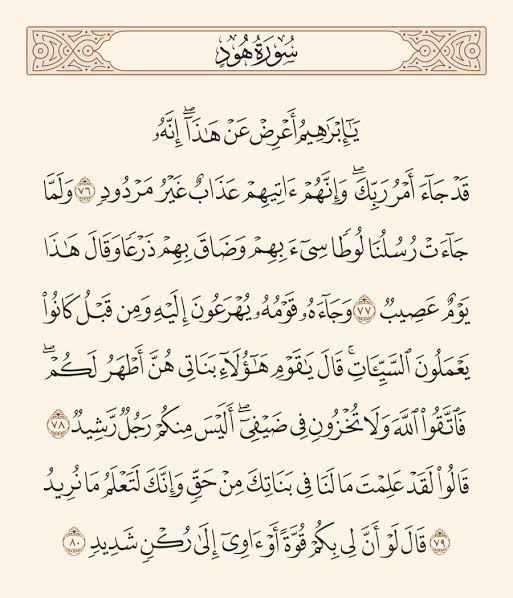 سُورَةُ هُودٍ
يَـٰٓإِبْرَٰهِيمُ أَعْرِضْ عَنْ هَـٰذَآ ۖ إِنَّهُۥ
قَدْ جَآءَ أَمْرُ رَبِّكَ ۖ وَإِنَّهُمْ ءَاتِيهِمْ عَذَابٌ غَيْرُ مَرْدُودٍ ٧٦ وَلَمَّا
جَآءَتْ رُسُلُنَا لُوطًا سِىٓءَ بِهِمْ وَضَاقَ بِهِمْ ذَرْعًا وَقَالَ هَـٰذَا
يَوْمٌ عَصِيبٌ ٧٧ وَجَآءَهُۥ قَوْمُهُۥ يُهْرَعُونَ إِلَيْهِ وَمِن قَبْلُ كَانُوا۟
يَعْمَلُونَ ٱلسَّيِّـَٔاتِ ۚ قَالَ يَـٰقَوْمِ هَـٰٓؤُلَآءِ بَنَاتِى هُنَّ أَطْهَرُ لَكُمْ ۖ
فَٱتَّقُوا۟ ٱللَّهَ وَلَا تُخْزُونِ فِى ضَيْفِىٓ ۖ أَلَيْسَ مِنكُمْ رَجُلٌ رَّشِيدٌ ٧٨
قَالُوا۟ لَقَدْ عَلِمْتَ مَا لَنَا فِى بَنَاتِكَ مِنْ حَقٍّ وَإِنَّكَ لَتَعْلَمُ مَا نُرِيدُ
٧٩ قَالَ لَوْ أَنَّ لِى بِكُمْ قُوَّةً أَوْ ءَاوِىٓ إِلَىٰ رُكْنٍ شَدِيدٍ ٨٠